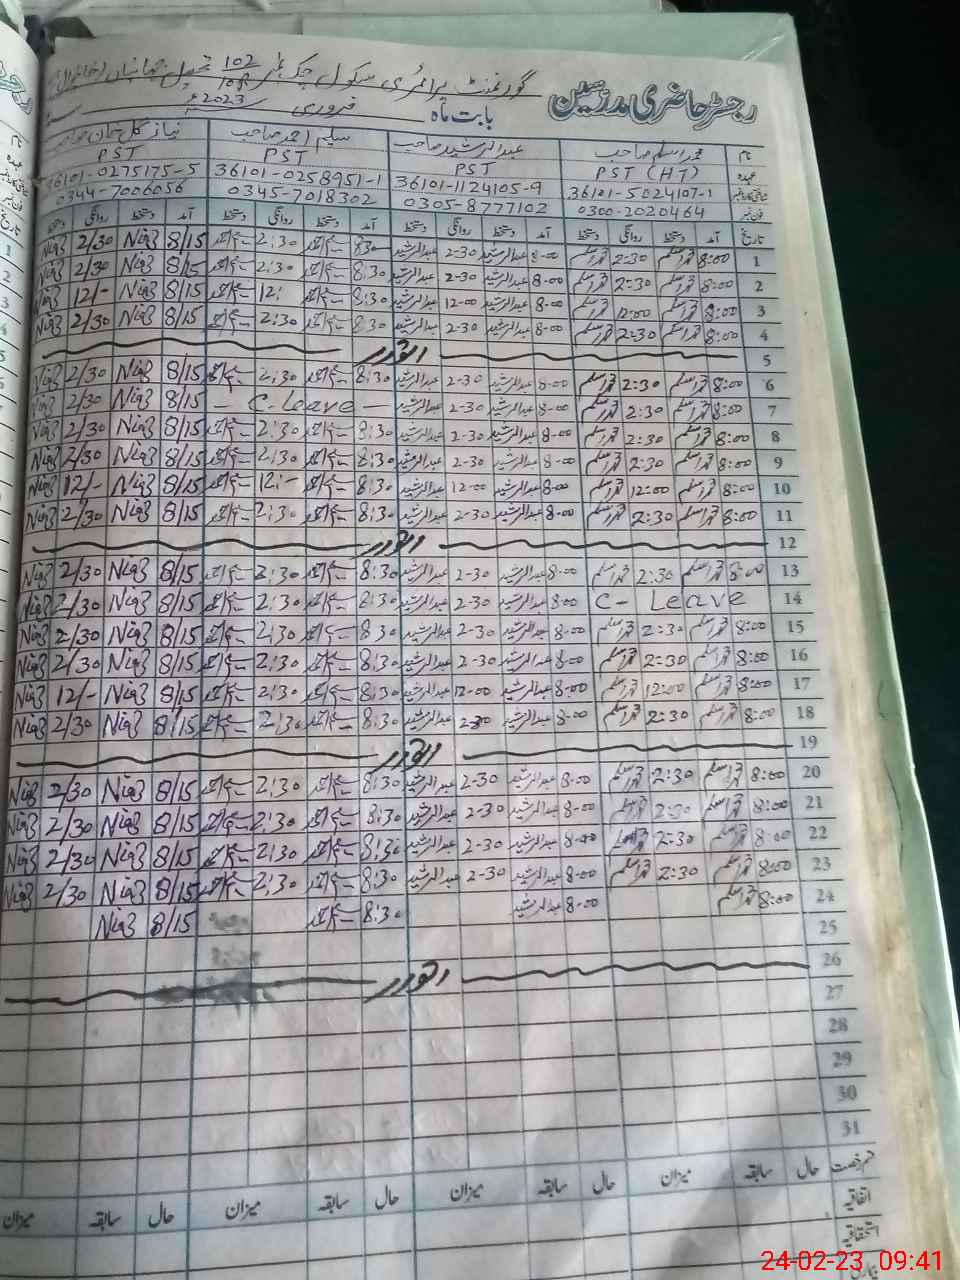 رجسٹر حاضری مدرّسین گورنمنٹ پرائمری سکول چک نمبر 102/10R تحصیل جہانیاں (خانیوال)
بابت ماہ فروری 2023ء
نام محمد اسلم صاحب عبدالرشید صاحب سلیم احمد صاحب نیاز گل خان صاحب
عہدہ PST (HT) PST PST PST
شناختی کارڈ نمبر 36101-5024107-1 36101-1124105-9 36101-0258951-1 36101-0275175-5
فون نمبر 0300-2020464 0305-8777102 0345-7018302 0344-7006056
تاریخ آمد دستخط روانگی دستخط آمد دستخط روانگی دستخط آمد دستخط روانگی دستخط آمد دستخط روانگی دستخط
1 8:00 محمد اسلم 2:30 محمد اسلم 8-00 عبدالرشید 2-30 عبدالرشید 8:30 سلیم احمد 2:30 سلیم احمد 8/15 Niaz 2/30 Niaz
2 8:00 محمد اسلم 2:30 محمد اسلم 8-00 عبدالرشید 2-30 عبدالرشید 8:30 سلیم احمد 2:30 سلیم احمد 8/15 Niaz 2/30 Niaz
3 8:00 محمد اسلم 12:00 محمد اسلم 8-00 عبدالرشید 12-00 عبدالرشید 8:30 سلیم احمد 12:- سلیم احمد 8/15 Niaz 12/- Niaz
4 8:00 محمد اسلم 2:30 محمد اسلم 8-00 عبدالرشید 2-30 عبدالرشید 8:30 سلیم احمد 2:30 سلیم احمد 8/15 Niaz 2/30 Niaz
5 اتوار
6 8:00 محمد اسلم 2:30 محمد اسلم 8-00 عبدالرشید 2-30 عبدالرشید 8:30 سلیم احمد 2:30 سلیم احمد 8/15 Niaz 2/30 Niaz
7 8:00 محمد اسلم 2:30 محمد اسلم 8-00 عبدالرشید 2-30 عبدالرشید – C-Leave – 8/15 Niaz 2/30 Niaz
8 8:00 محمد اسلم 2:30 محمد اسلم 8-00 عبدالرشید 2-30 عبدالرشید 8:30 سلیم احمد 2:30 سلیم احمد 8/15 Niaz 2/30 Niaz
9 8:00 محمد اسلم 2:30 محمد اسلم 8-00 عبدالرشید 2-30 عبدالرشید 8:30 سلیم احمد 2:30 سلیم احمد 8/15 Niaz 2/30 Niaz
10 8:00 محمد اسلم 12:00 محمد اسلم 8-00 عبدالرشید 12-00 عبدالرشید 8:30 سلیم احمد 12:- سلیم احمد 8/15 Niaz 12/- Niaz
11 8:00 محمد اسلم 2:30 محمد اسلم 8-00 عبدالرشید 2-30 عبدالرشید 8:30 سلیم احمد 2:30 سلیم احمد 8/15 Niaz 2/30 Niaz
12 اتوار
13 8:00 محمد اسلم 2:30 محمد اسلم 8-00 عبدالرشید 2-30 عبدالرشید 8:30 سلیم احمد 2:30 سلیم احمد 8/15 Niaz 2/30 Niaz
14 C- Leave 8-00 عبدالرشید 2-30 عبدالرشید 8:30 سلیم احمد 2:30 سلیم احمد 8/15 Niaz 2/30 Niaz
15 8:00 محمد اسلم 2:30 محمد اسلم 8-00 عبدالرشید 2-30 عبدالرشید 8:30 سلیم احمد 2:30 سلیم احمد 8/15 Niaz 2/30 Niaz
16 8:00 محمد اسلم 2:30 محمد اسلم 8-00 عبدالرشید 2-30 عبدالرشید 8:30 سلیم احمد 2:30 سلیم احمد 8/15 Niaz 2/30 Niaz
17 8:00 محمد اسلم 12:00 محمد اسلم 8-00 عبدالرشید 12-00 عبدالرشید 8:30 سلیم احمد 2:30 سلیم احمد 8/15 Niaz 12/- Niaz
18 8:00 محمد اسلم 2:30 محمد اسلم 8-00 عبدالرشید 2-30 عبدالرشید 8:30 سلیم احمد 2:30 سلیم احمد 8/15 Niaz 2/30 Niaz
19 اتوار
20 8:00 محمد اسلم 2:30 محمد اسلم 8-00 عبدالرشید 2-30 عبدالرشید 8:30 سلیم احمد 2:30 سلیم احمد 8/15 Niaz 2/30 Niaz
21 8:00 محمد اسلم 2:30 محمد اسلم 8-00 عبدالرشید 2-30 عبدالرشید 8:30 سلیم احمد 2:30 سلیم احمد 8/15 Niaz 2/30 Niaz
22 8:00 محمد اسلم 2:30 محمد اسلم 8-00 عبدالرشید 2-30 عبدالرشید 8:30 سلیم احمد 2:30 سلیم احمد 8/15 Niaz 2/30 Niaz
23 8:00 محمد اسلم 2:30 محمد اسلم 8-00 عبدالرشید 2-30 عبدالرشید 8:30 سلیم احمد 2:30 سلیم احمد 8/15 Niaz 2/30 Niaz
24 8:00 محمد اسلم 8-00 عبدالرشید 8:30 سلیم احمد 8/15 Niaz
25
26 اتوار
27
28
29
30
31
قسم رخصت حال سابقہ میزان حال سابقہ میزان حال سابقہ میزان حال سابقہ میزان
اتفاقیہ
استحقاقیہ
24-02-23 09:41